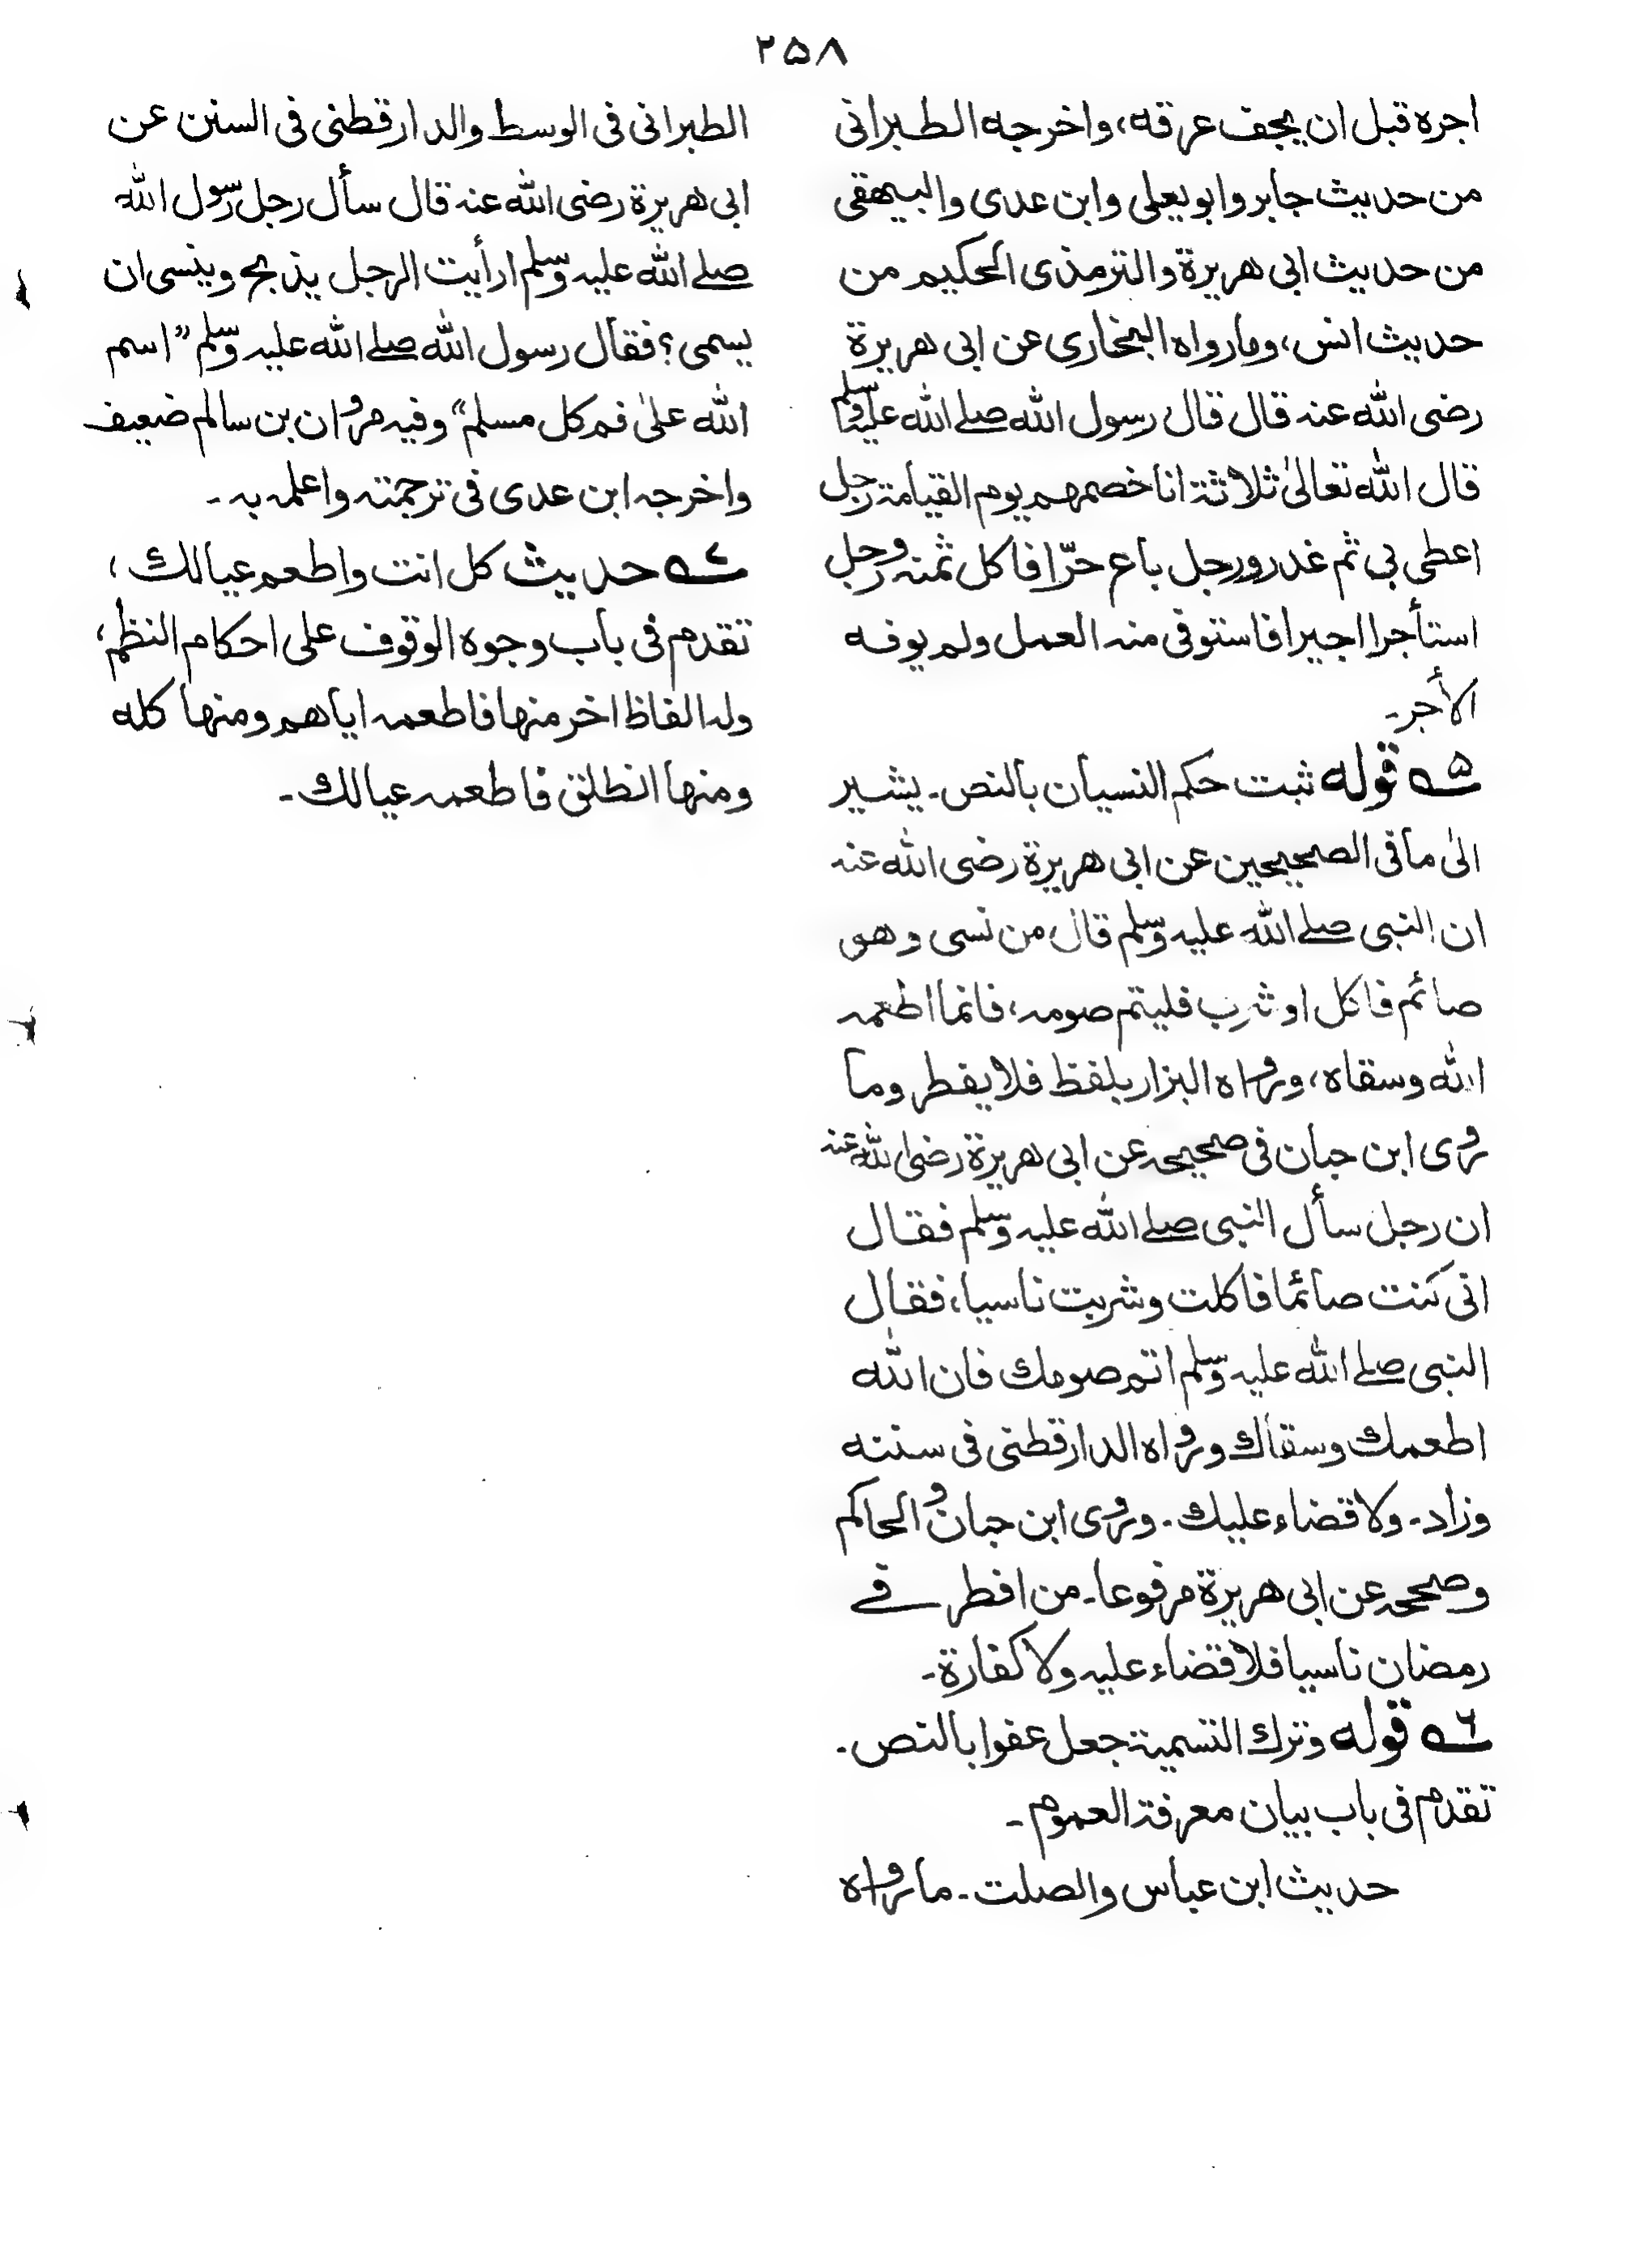 ۲۵۸
اجره قبل ان يجف عرقه، واخرجه الطبرانى
من حديث جابر وابو يعلى وابن عدى والبيهقى
من حديث ابى هريرة والترمذى الحكيم من
حديث انس، وما رواه البخارى عن ابى هريرة
رضى الله عنه قال قال رسول الله صلے الله عليه وسلم
قال الله تعالىٰ ثلاثة انا خصمهم يوم القيامة رجل
اعطى بى ثم غدر ورجل باع حرّا فاكل ثمنه ورجل
استأجرا اجيرا فاستوفى منه العمل ولم يوفه
الأجر۔
۵ قوله ثبت حكم النسيان بالنص۔ يشير
الىٰ ما فى الصحيحين عن ابى هريرة رضى الله عنه
ان النبى صلے الله عليه وسلم قال من نسى وهو
صائم فاكل او شرب فليتم صومه، فانما اطعمه
الله وسقاه، ورواه البزار بلفظ فلا يفطر وما
روى ابن حبان فى صحيحه عن ابى هريرة رضى الله عنه
ان رجل سأل النبى صلے الله عليه وسلم فقال
انى كنت صائما فاكلت وشربت ناسيا، فقال
النبى صلے الله عليه وسلم اتم صومك فان الله
اطعمك وسقاك ورواه الدارقطنى فى سننه
وزاد۔ ولا قضاء عليك۔ وروى ابن حبان والحاكم
وصححه عن ابى هريرة مرفوعا۔ من افطر فے
رمضان ناسيا فلا قضاء عليه ولا كفارة۔
۶ قوله وترك التسمية جعل عفوا بالنص۔
تقدم فى باب بيان معرفة العموم۔
حديث ابن عباس والصلت۔ ما رواه
الطبرانى فى الوسط والدارقطنى فى السنن عن
ابى هريرة رضى الله عنه قال سأل رجل رسول الله
صلے الله عليه وسلم ارأيت الرجل يذبح وينسى ان
يسمى؟ فقال رسول الله صلے الله عليه وسلم ”اسم
الله علىٰ فم كل مسلم“ وفيه مروان بن سالم ضعيف
واخرجه ابن عدى فى ترجمته واعلمه به۔
۷ حديث كل انت واطعم عيالك،
تقدم فى باب وجوه الوقوف على احكام النظم،
وله الفاظ اخر منها فاطعمه اياهم ومنها كله
ومنها انطلق فاطعمه عيالك۔